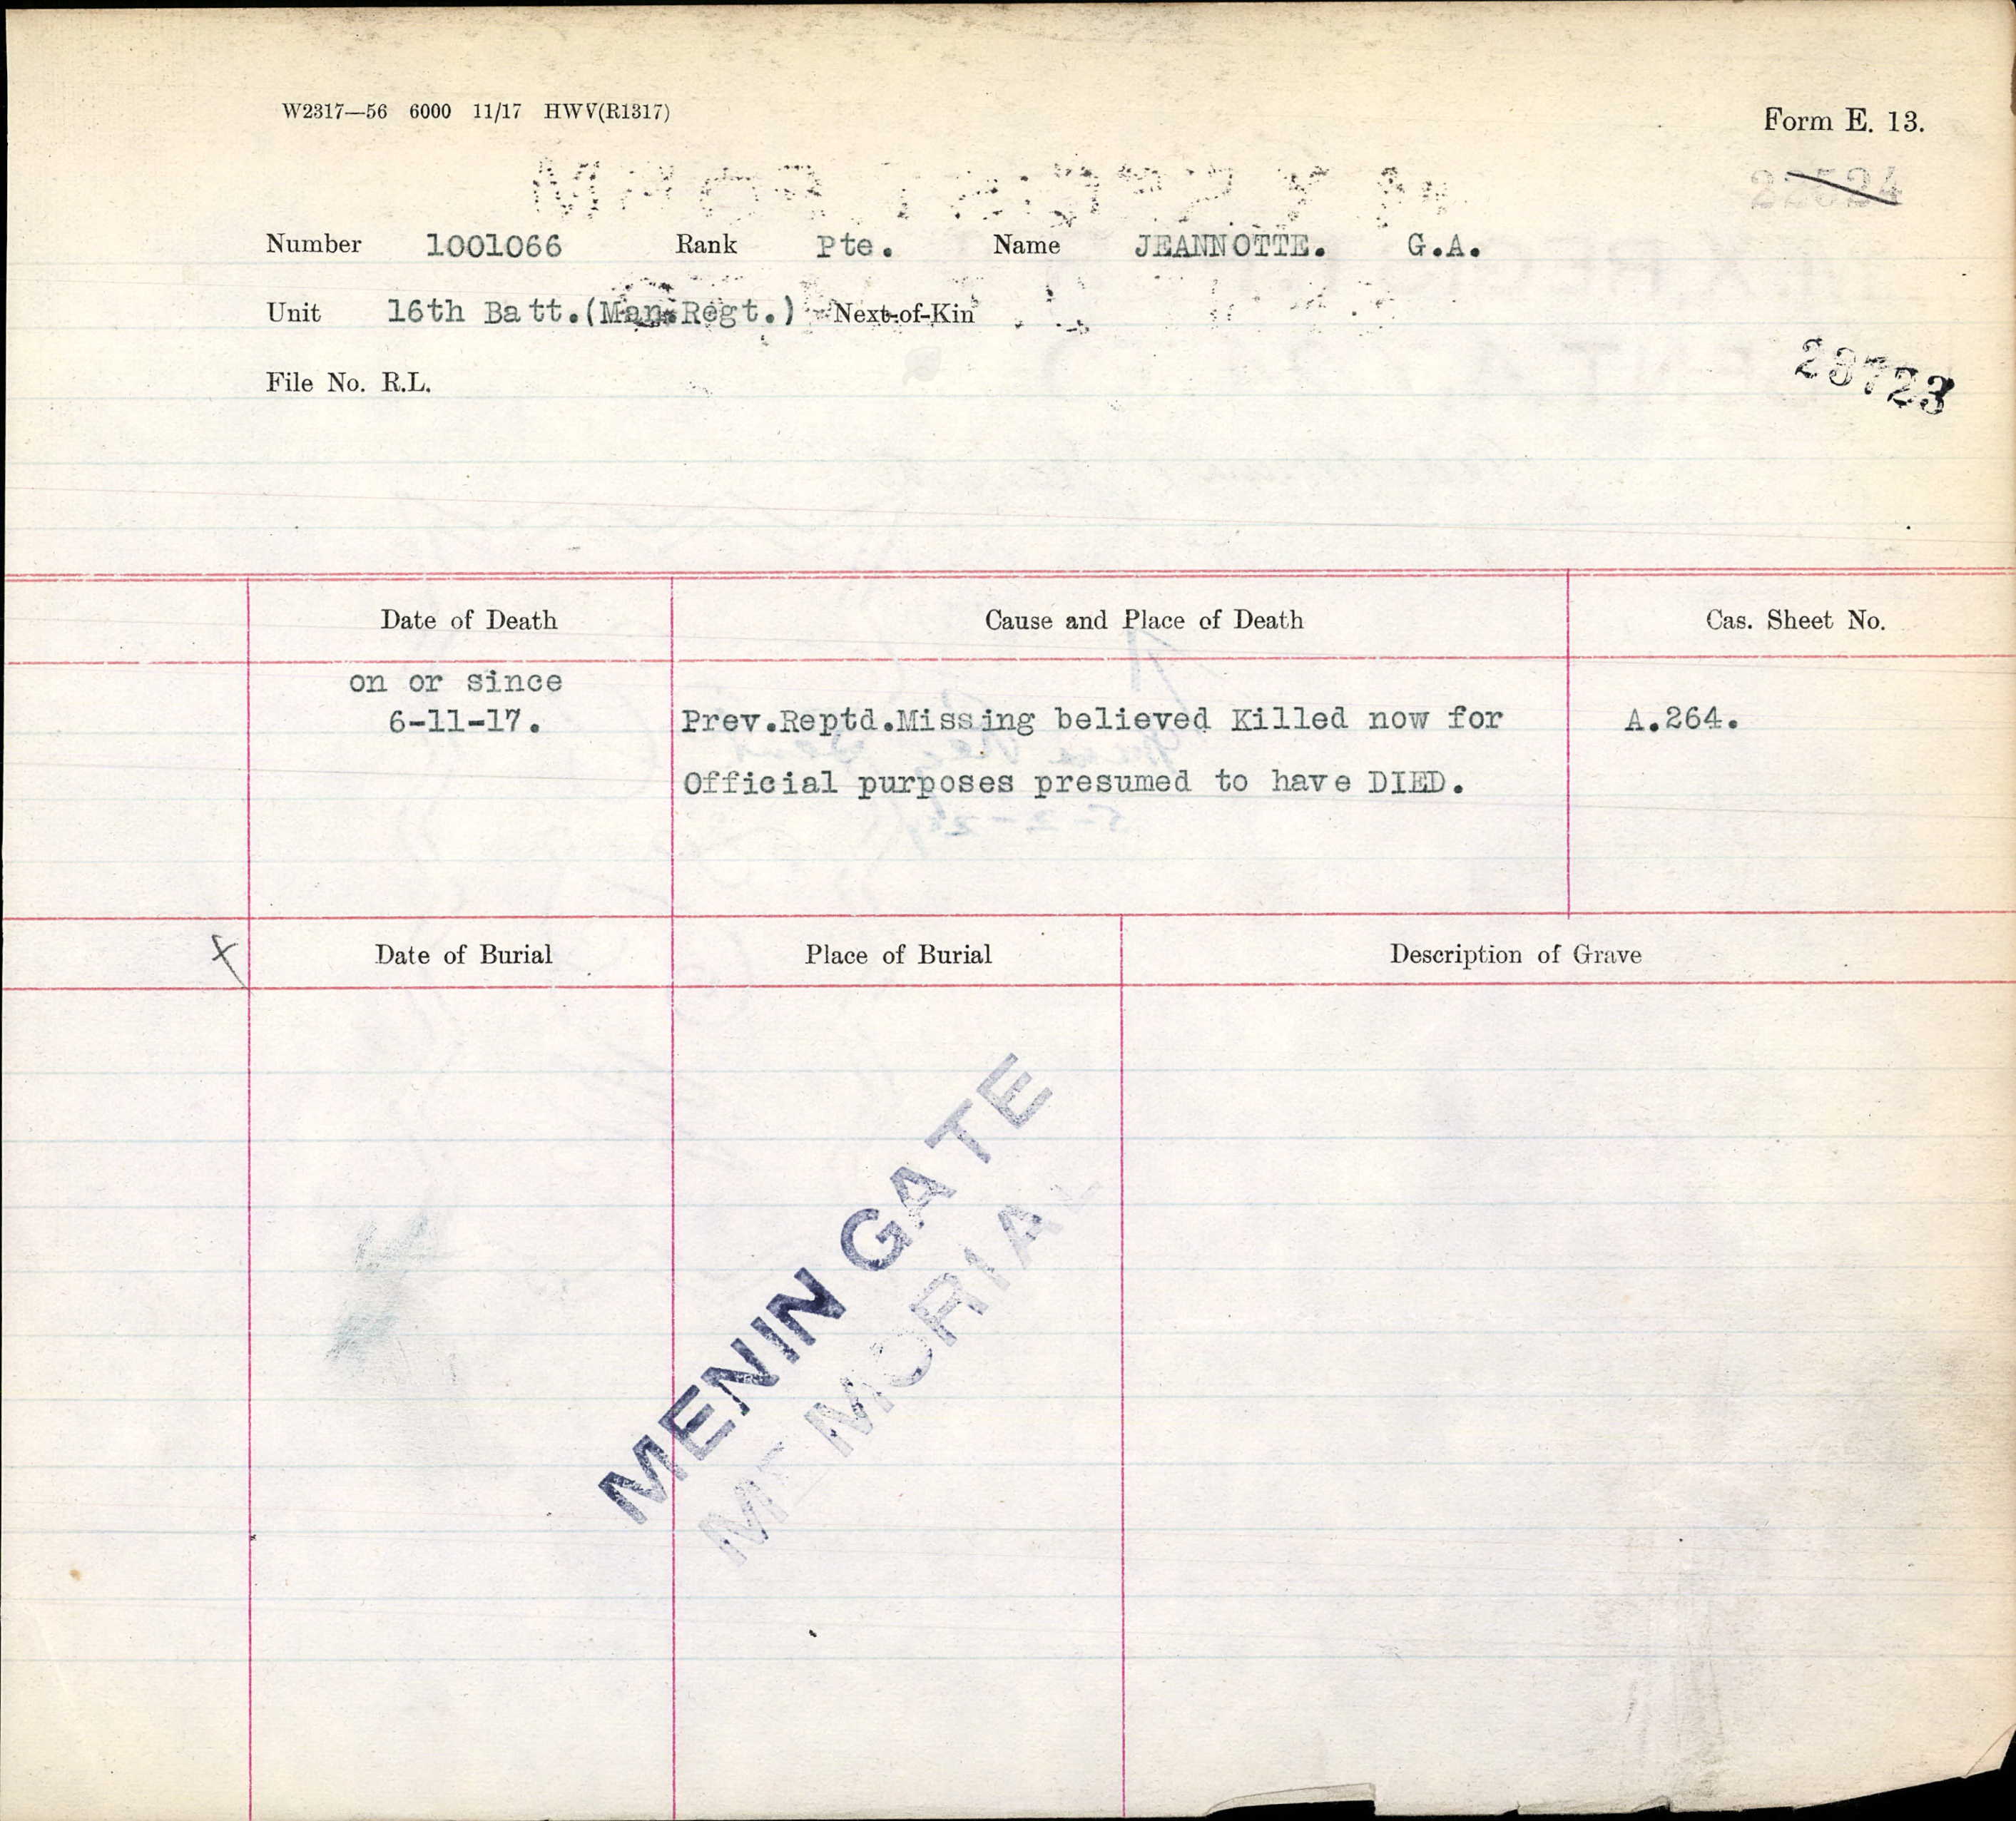 W2317—56 6000 11/17 HWV(R1317)
Form E. 13.
22524
Number 1001066 Rank Pte. Name JEANNOTTE. G.A.
Unit 16th Batt.(Man.Regt.) Next-of-Kin
File No. R.L.
29723
Date of Death Cause and Place of Death Cas. Sheet No.
on or since
6-11-17. Prev.Reptd.Missing believed Killed now for A.264.
Official purposes presumed to have DIED.
x Date of Burial Place of Burial Description of Grave
MENIN GATE
MEMORIAL